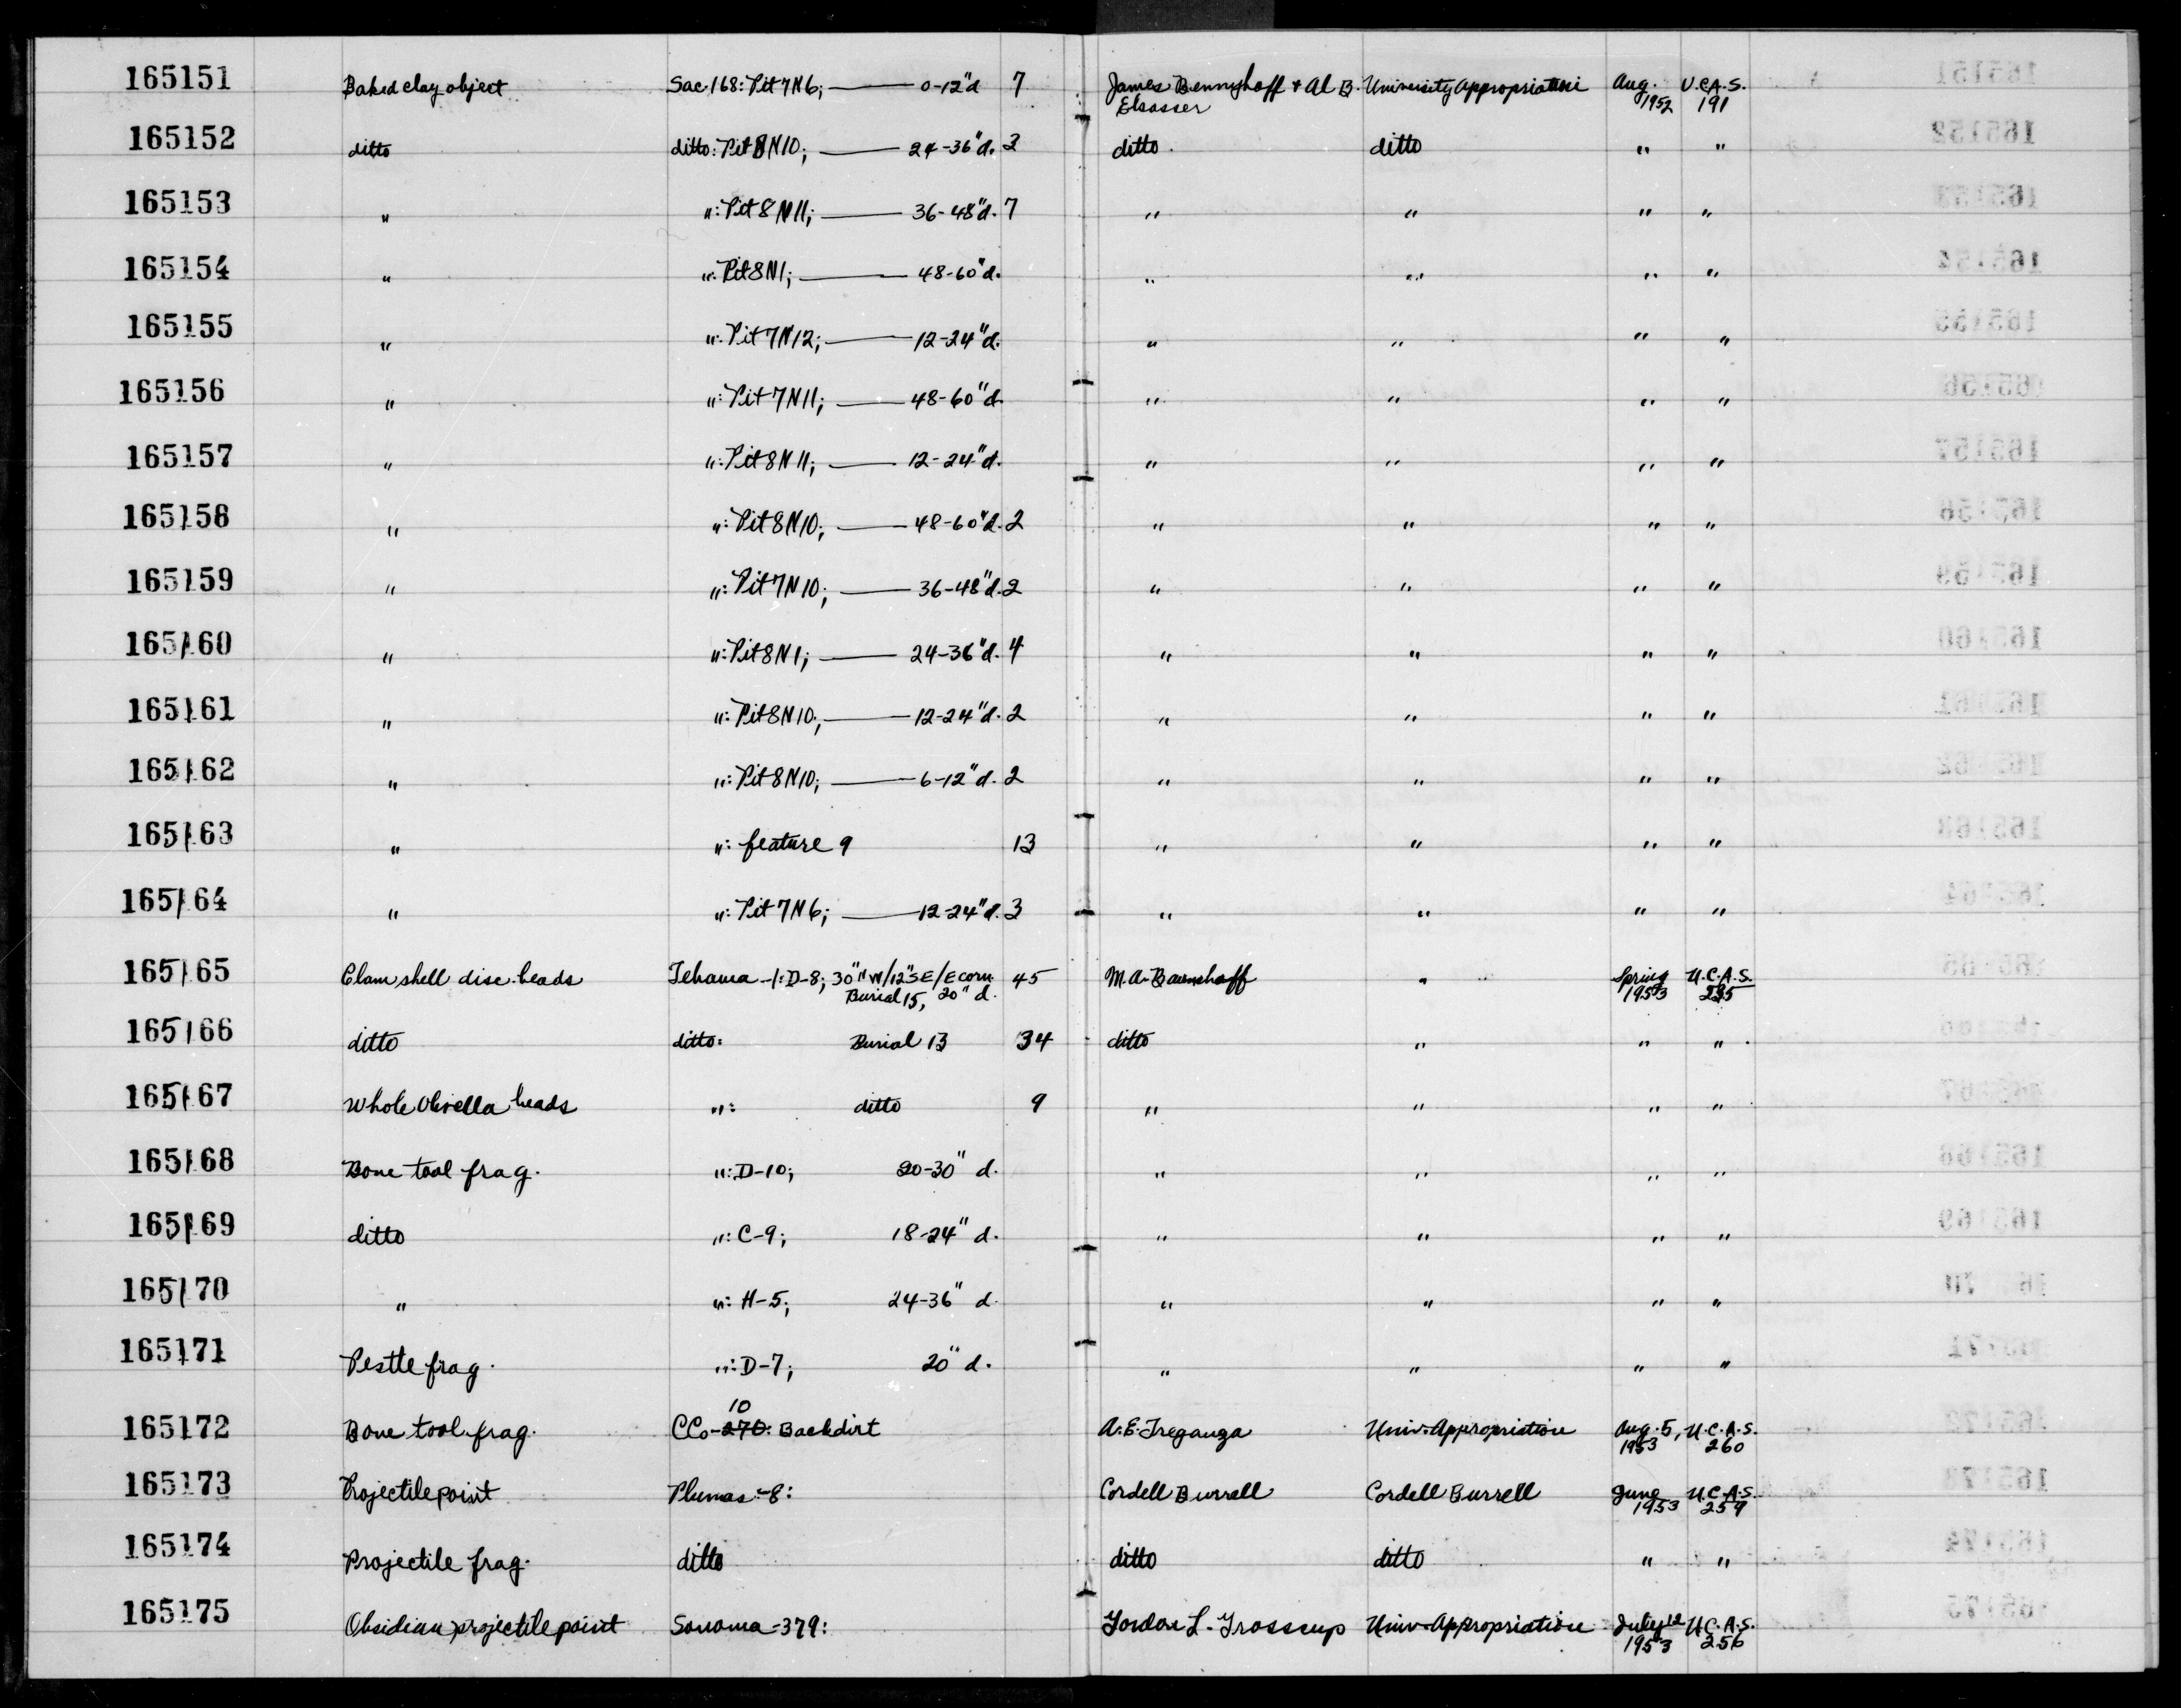 165151 Baked clay object Sac-168: Pit 7N6; — 0-12"d 7 James Bennyhoff + Al B. University Appropriation Aug. U.C.A.S.
Elsasser 1952 191
165152 ditto ditto: Pit 8N10; — 24-36"d. 3 ditto ditto " "
165153 " ": Pit 8N11; — 36-48"d. 7 " " " "
165154 " ": Pit 8N1; — 48-60"d. " " " "
165155 " ": Pit 7N12; — 12-24"d. " " " "
165156 " ": Pit 7N11; — 48-60"d. " " " "
165157 " ": Pit 8N11; — 12-24"d. " " " "
165158 " ": Pit 8N10; — 48-60"d. 2 " " " "
165159 " ": Pit 7N10; — 36-48"d. 2 " " " "
165160 " ": Pit 8N1; — 24-36"d. 4 " " " "
165161 " ": Pit 8N10; — 12-24"d. 2 " " " "
165162 " ": Pit 8N10; — 6-12"d. 2 " " " "
165163 " ": feature 9 13 " " " "
165164 " ": Pit 7N6; — 12-24"d. 3 " " " "
165165 Clam shell disc beads Tehama-1: D-8; 30"NW/12"SE/E corn. 45 M.A. Baumhoff " Spring U.C.A.S.
Burial 15, 20" d. 1953 235
165166 ditto ditto: Burial 13 34 ditto " " "
165167 Whole Olivella beads ": ditto 9 " " " "
165168 Bone tool frag. ": D-10; 20-30" d. " " " "
165169 ditto ": C-9; 18-24" d. " " " "
165170 " ": H-5; 24-36" d. " " " "
165171 Pestle frag. ": D-7; 20" d. " " " "
10
165172 Bone tool frag. CCo-270: Backdirt A.E. Treganza Univ. Appropriation Aug. 5, U.C.A.S.
1953 260
165173 Projectile point Plumas-8: Cordell Burrell Cordell Burrell June U.C.A.S.
1953 259
165174 Projectile frag. ditto ditto ditto " "
165175 Obsidian projectile point Sonoma-379: Gordon L. Grosscup Univ. Appropriation July 12 U.C.A.S.
1953 256